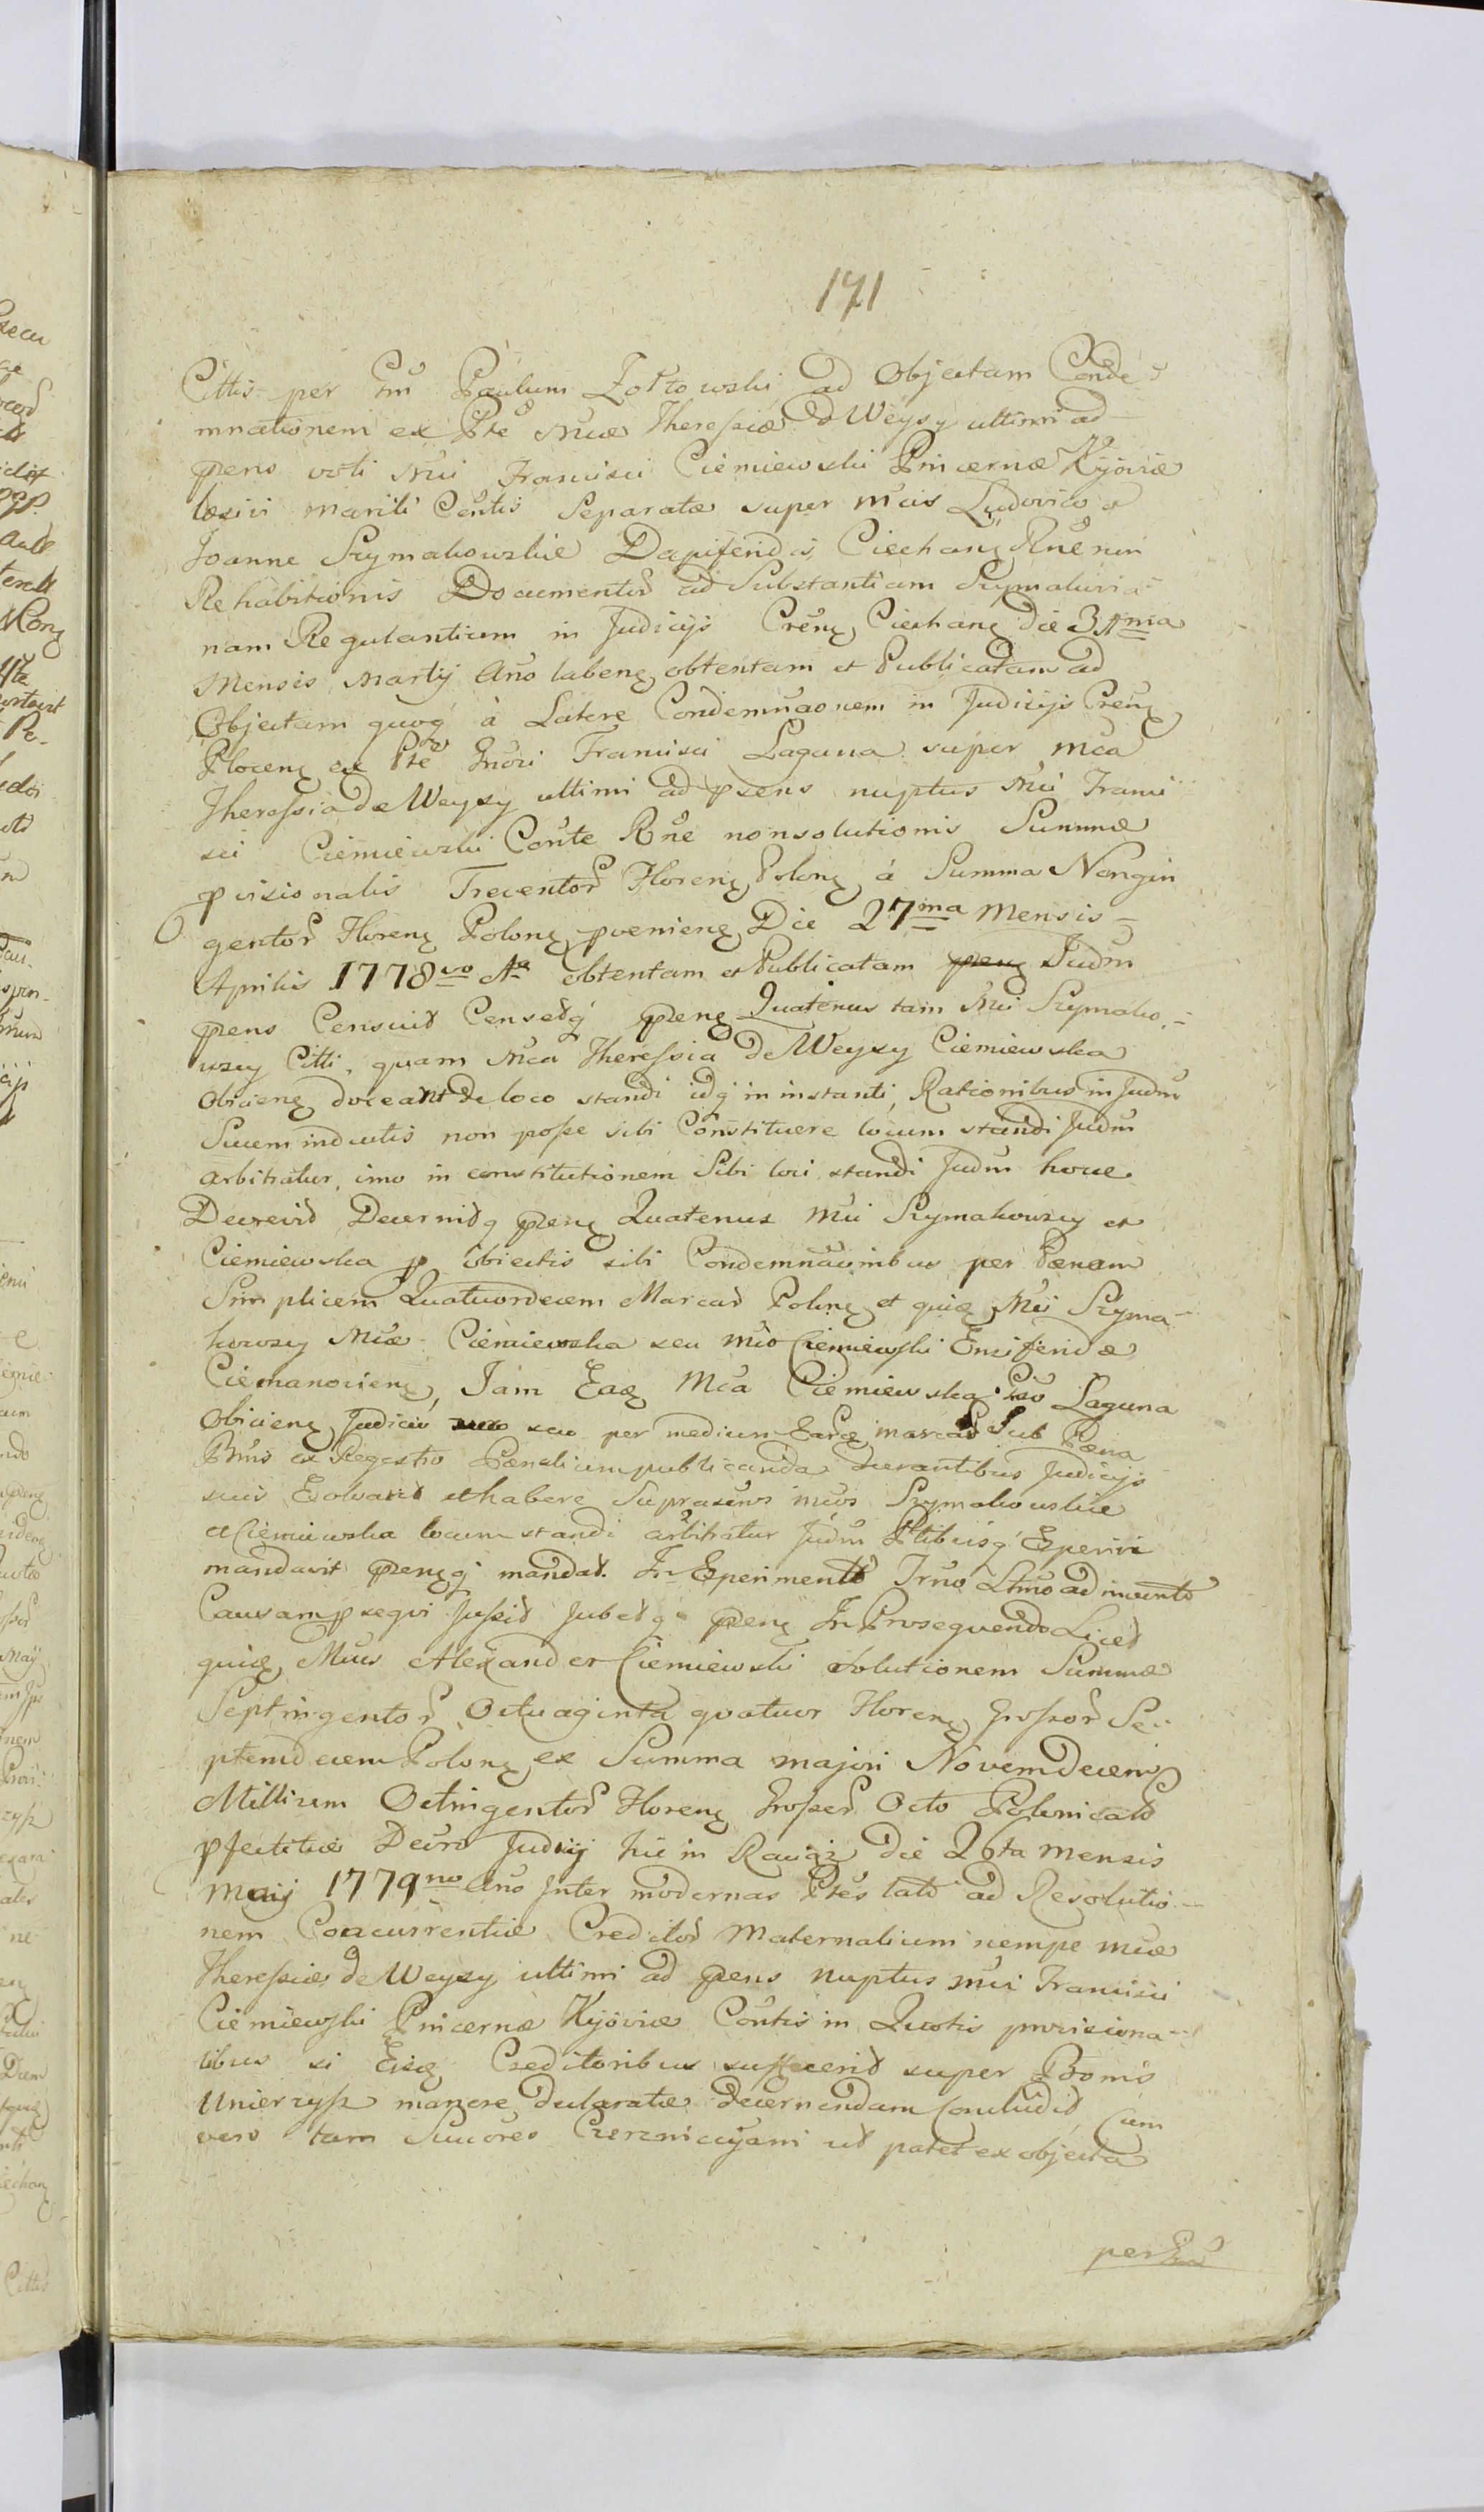 171
Cittis per Gm̄ Paulum Zołtowski ad Objectam Conde-
mnationem ex Pte Mcæ Theressiæ de Weysy ultimi ad
præns voti Mci Francisci Ciemiewski Pincernæ Kijoviæ
mariti Contis Separatæ super Mcis Ludovico et
Joanne Szymakowskie Dapiferidis Ciechanꝫ Rne non
Rehabitionis Documentor ad Substantiam Szymakovia-
nam Regulantium in Judicijs Crenꝫ Ciechanꝫ die 31ma
Mensis Martij Ano labenꝫ obtentam et Publicatam ad
Objectam quoqꝫ à Latere Condemnaonem in Judicijs Crenꝫ
Plocenꝫ ex Pte Francisci Laguna super Mca
Theressia de Weysy ultimi ad præns nuptus Mci Franci
sci Ciemiewski Conte Rne nonsolutionis Summæ
provisionalis Trecentor Florenꝫ Polonꝫ à Summa Nongin
gentor Florenꝫ Polonꝫ provenienꝫ Die 27ma Mensis
Aprilis 1778vo Ao obtentam et Publicatam prenꝫ Judm
præns Censuit Censetqꝫ prænꝫ Quatenus tam Mci Szymako-
wscy Citti, quam Mca Theressia de Weysy Ciemiewska
Obicienꝫ doceant de loco standi idqꝫ in instanti, Rationibus in Judm
inductis non posse sibi Constituere locum standi Judm
arbitratur, imo in constitutionem Sibi loci standi Judm hocce
Decrevit Decernitqꝫ prænꝫ Quatenus Mci Szymakowscy et
Ciemiewska pro obiectis sibi Condemnaonibus per Pænam
Simplicem Quatuordecem Marcas Polonꝫ et quidꝫ Mci Szyma-
kowscy Mcæ Ciemiewska seu Mco Ciemiewski Ensiferidæ
Ciechanovienꝫ, Jam Eadꝫ Mca Ciemiewska Laguna
Obicienꝫ Judicio seu per medium Easdꝫ marcas Sub Pæna
Bnis ex Regestro Pænalium publicanda durantibus Judicijs
suis Exolvant et habere Supraseros Mcos Szymakowskie
et Ciemiewska locum standi arbitratur Judm Ptibusqꝫ Experiri
mandavit prænꝫqꝫ mandat. In Experimento ad invento
Causam prosegvi Jussit Jubetqꝫ prænꝫ In Prosequendo Licet
quidꝫ Mcus Alexander Ciemiewski solutionem Summæ
Septingentor Octuaginta quatuor Florenꝫ Grossor Se-
ptemdecem Polonꝫ ex Summa majori Novemdecem
Millium Octingentor Florenꝫ Grosser Octo Polonicales
Decro Judicij hic in Raciąż die 26ta Mensis
Maij 1779no Ano Inter modernas Ptes lato ad Resolutio-
nem Concurrentiæ Creditor Maternalium nempe Mcæ
Theressiæ de Weysy ultimi ad præns nuptus Mci Francisci
Ciemiewski Pincernæ Kijoviæ Contis in Quotis provisiona-
libus si Eisdꝫ Creditoribus suffecerit super Bonis
Unierzysz manere declaratæ decernendam Concludit, Cum
vero tam Succores Czerznicijani ut patet ex objecta
per